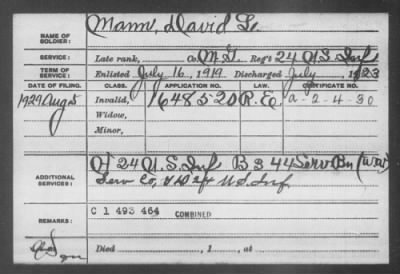 NAME OF SOLDIER: Mann, David L.
SERVICE: Late rank, Co. M.G. Reg't 24 U.S. Inf
TERM OF SERVICE: Enlisted July 16, 1919. Discharged July, 1923
DATE OF FILING. CLASS. APPLICATION NO. LAW. CERTIFICATE NO.
1929 Aug 5 Invalid, 1648520 R.E. a-2-4-30
Widow,
Minor,
ADDITIONAL SERVICES: 24 U.S. Inf B 344 Serv Bn (WW)
Serv Co, 24 U.S. Inf
REMARKS: C 1 493 464 COMBINED
Died, 1, at